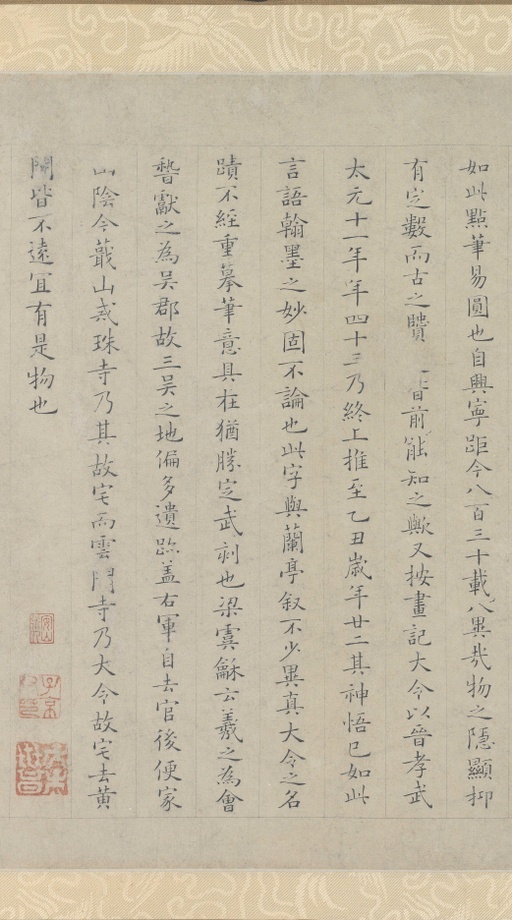 如此點筆易圓也自興寧距今八百三十載八異哉物之隱顯抑
有定數而古之賾 前能知之歟又按畫記大令以晉孝武
太元十一年年四十三乃終上推至乙丑歲年廿二其神悟已如此
言語翰墨之妙固不論也此字與蘭亭叙不少異真大令之名
蹟不經重摹筆意具在猶勝定武刻也梁虞龢云羲之為會
獻之為吳郡故三吳之地偏多遺跡盖右軍自去官後便家
山陰今蕺山戒珠寺乃其故宅而雲門寺乃大令故宅去黄
閍皆不遠宜有是物也